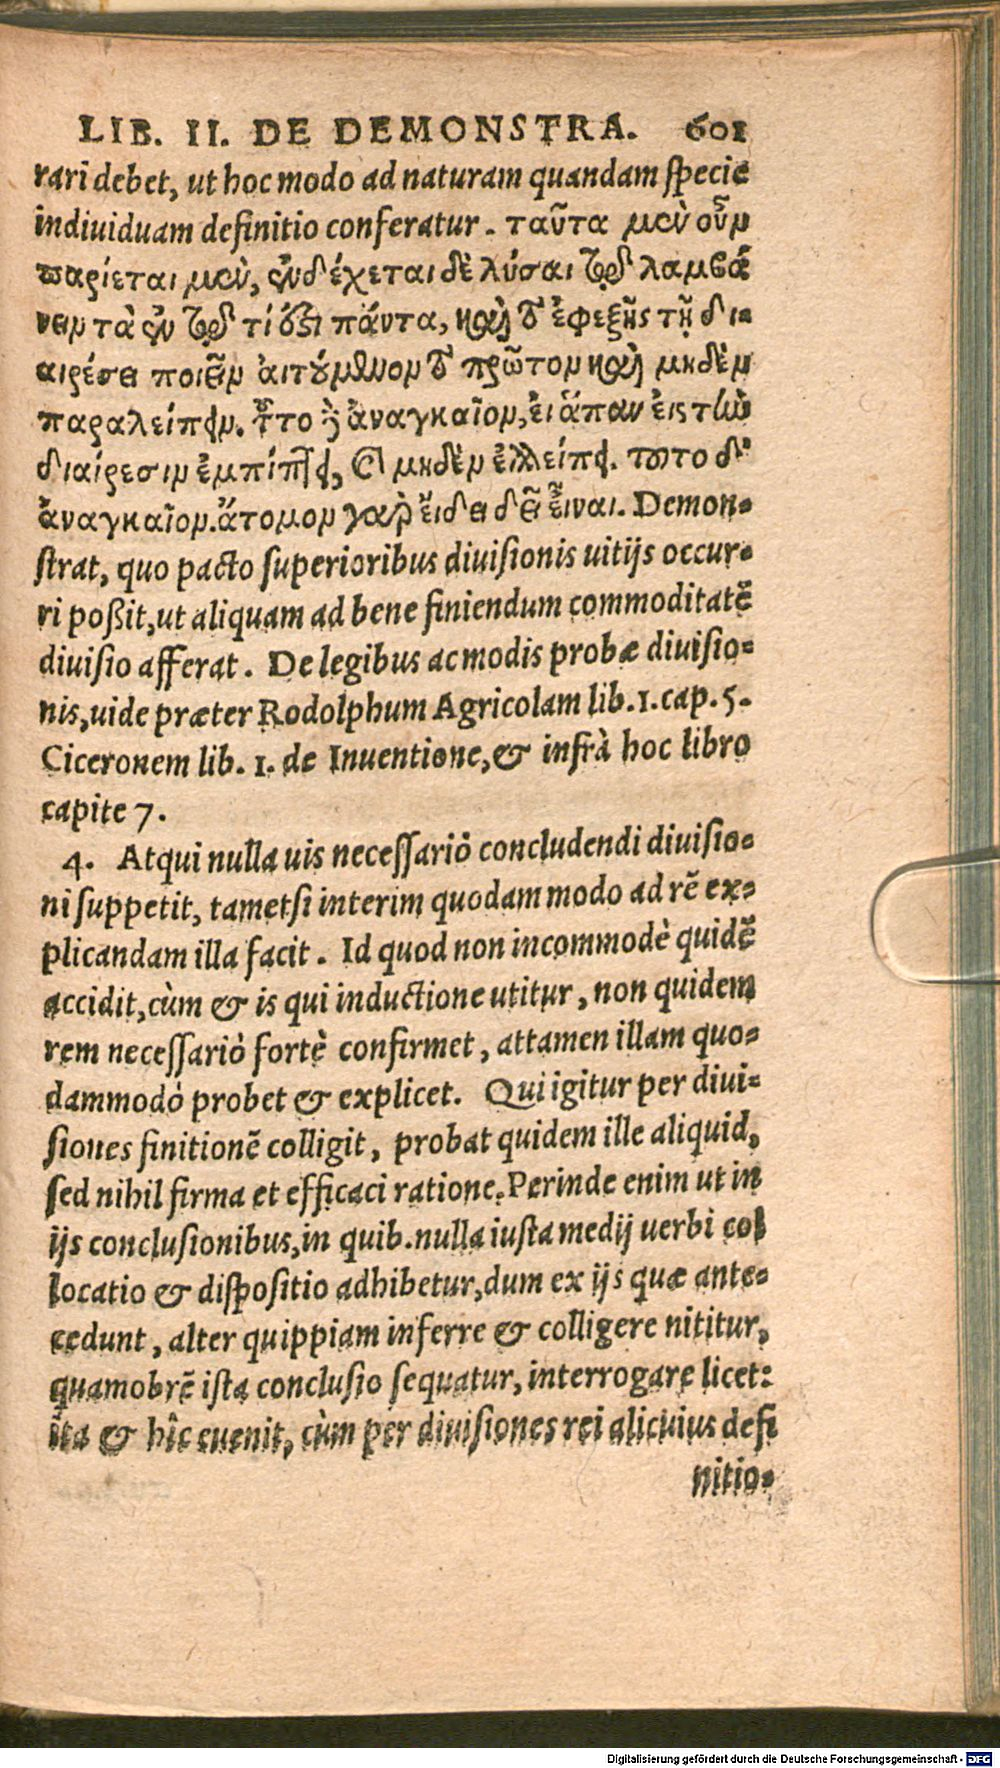 LIB. II. DE DEMONSTRA. 601
rari debet, ut hoc modo ad naturam quandam specie
indiuiduam definitio conferatur. ταῦτα μὲν οὖν
παρίεται μὲν, ἐνδέχεται δὲ λύσαι τῷ λαμβά
νειν τὰ ἐν τῷ τί ὅξι πάντα, καὶ τὸ ἐφεξῆς τῇ δι-
αιρέσει ποιεῖν αἰτούμενον τὸ πρῶτον καὶ μηδὲν
παραλείπειν. τοῦτο δὲ ἀναγκαῖον, εἰ ἅπαν εἰς τὴν
διαίρεσιν ἐμπίπτει, καὶ μηδὲν ἐλλείπει. τοῦτο δ'
ἀναγκαῖον. ἄτομον γὰρ εἴδει δεῖ εἶναι. Demon-
strat, quo pacto superioribus diuisionis uitijs occur-
ri poßit, ut aliquam ad bene finiendum commoditatē
diuisio afferat. De legibus ac modis probæ diuisio-
nis, uide præter Rodolphum Agricolam lib. 1. cap. 5.
Ciceronem lib. 1. de Inuentione, & infrà hoc libro
capite 7.
4. Atqui nulla uis necessariò concludendi diuisio-
ni suppetit, tametsi interim quodammodo ad rē ex-
plicandam illa facit. Id quod non incommodè quidē
accidit, cùm & is qui inductione utitur, non quidem
rem necessariò fortè confirmet, attamen illam quo-
dammodò probet & explicet. Qui igitur per diui-
siones finitionē colligit, probat quidem ille aliquid,
sed nihil firma et efficaci ratione. Perinde enim ut in
ijs conclusionibus, in quib. nulla iusta medij uerbi col
locatio & dispositio adhibetur, dum ex ijs quæ ante-
cedunt, alter quippiam inferre & colligere nititur,
quamobrē ista conclusio sequatur, interrogare licet:
ita & hîc euenit, cùm per diuisiones rei alicuius defi
nitio-
Digitalisierung gefördert durch die Deutsche Forschungsgemeinschaft - DFG